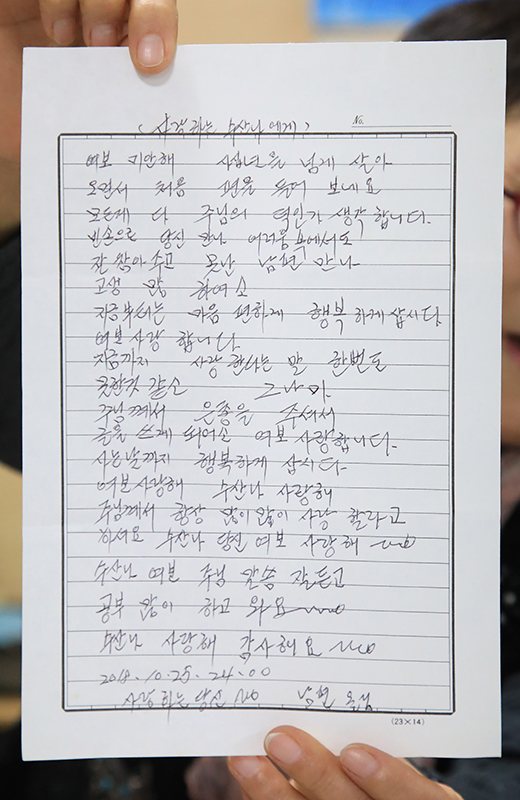 (사랑하는 수산나에게)
No.
여보 미안해 사십년을 넘게 살아
오면서 처음 편을 들어 보네요
모든게 다 주님의 역인가 생각합니다.
빈손으로 당신 만나 어려움 속에서도
잘 참아주고 못난 남편 만나
고생 많 하여소
지금부터는 마음 편하게 행복하게 삽시다
여보 사랑 합니다
지금까지 사랑 한다는 말 한번도
못한것 같소 그나마
주님께서 은총을 주셔서
글을 쓰게 되어소 여보 사랑합니다.
사는날까지 행복하게 삽시다.
여보 사랑해 수산나 사랑해
주님께서 항상 많이많이 사랑 할라고
하서요 수산나 당신 여보 사랑해
수산나 여보 주님 말씀 잘듣고
공부 많이 하고 와요
수산나 사랑해 감사해요
2018.10.25.24.00
사랑하는 당신 남편
(23×14)